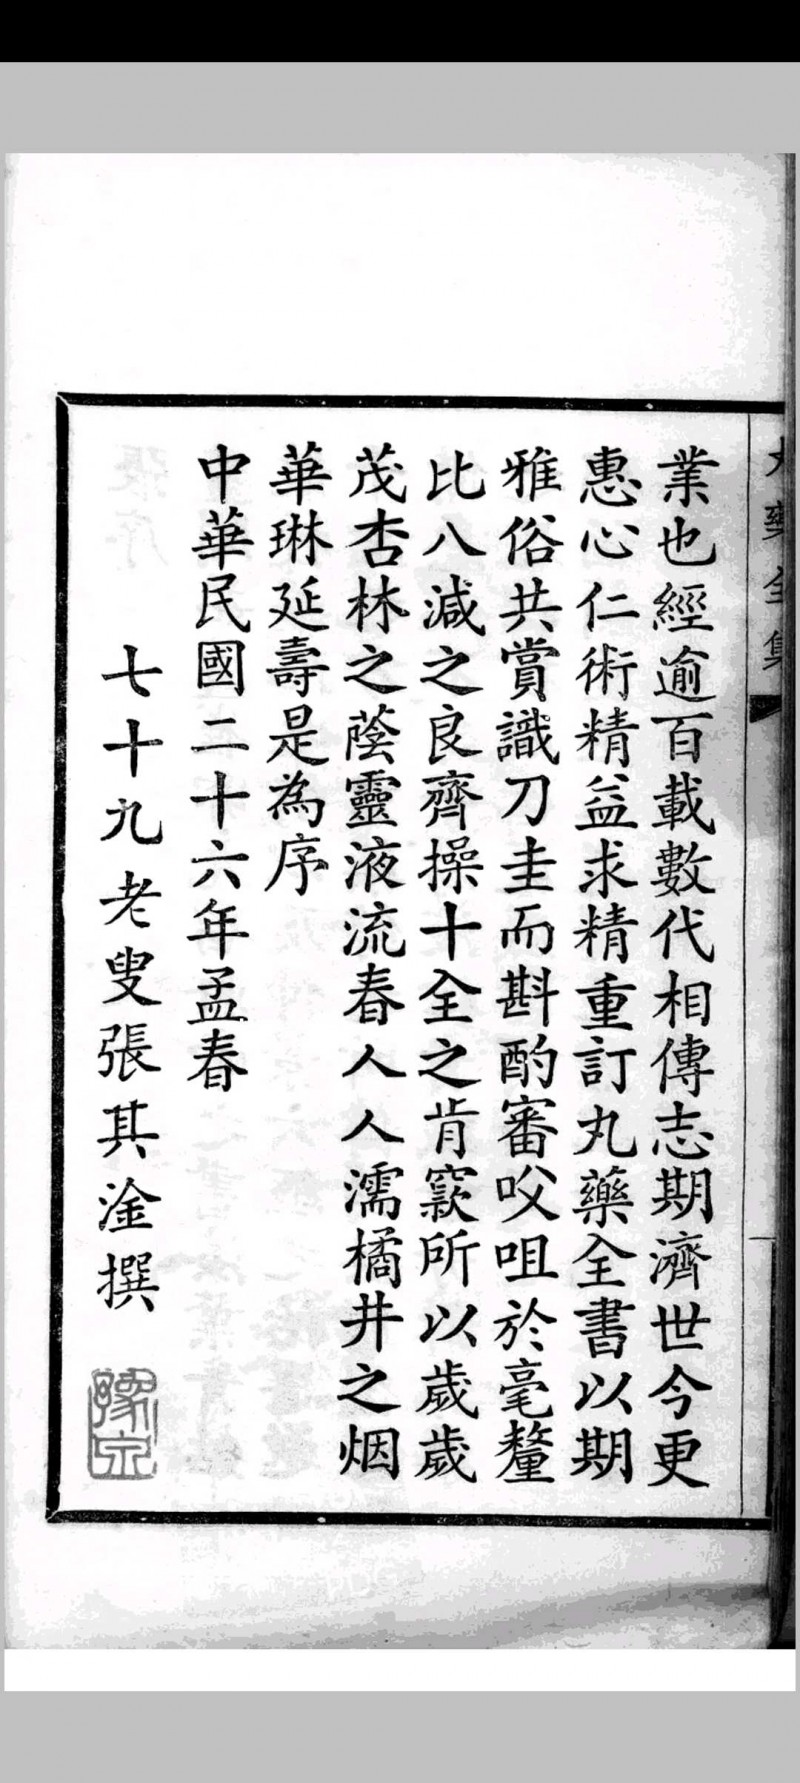 業也經逾百載數代相傳志期濟世今更
惠心仁術精益求精重訂丸藥全書以期
雅俗共賞識刀圭而斟酌審㕮咀於毫釐
比八減之良齊操十全之肯窾所以歲歲
茂杏林之蔭靈液流春人人濡橘井之烟
華琳延壽是為序
中華民國二十六年孟春
七十九老叟張其淦撰
豫泉